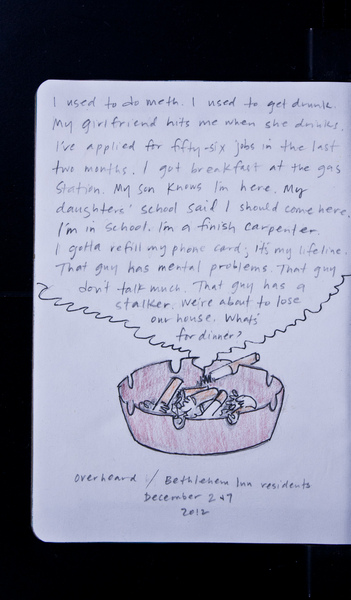 I used to do meth. I used to get drunk.
My girlfriend hits me when she drinks.
I've applied for fifty-six jobs in the last
two months. I got breakfast at the gas
station. My son knows I'm here. My
daughters' school said I should come here.
I'm in school. I'm a finish carpenter.
I gotta refill my phone card; it's my lifeline.
That guy has mental problems. That guy
don't talk much. That guy has a
stalker. We're about to lose
our house. What's
for dinner?
Overheard :/ Bethlehem Inn residents
December 2 & 7
2012